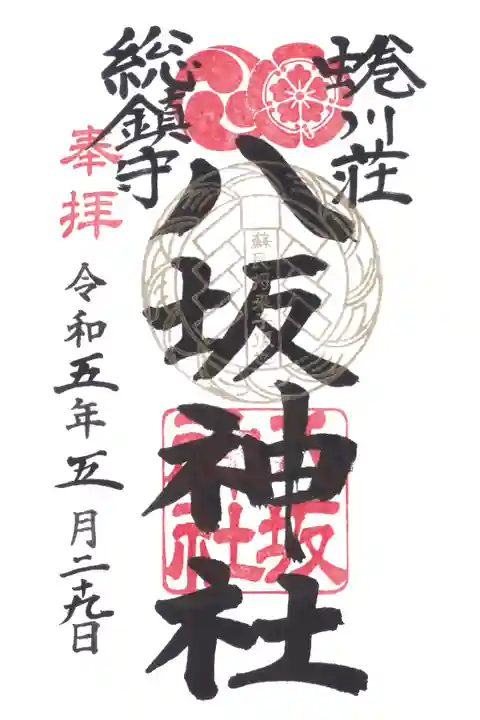 蜷川荘
総鎮守
八坂神社
奉拝
令和五年五月二十九日
八坂
神社